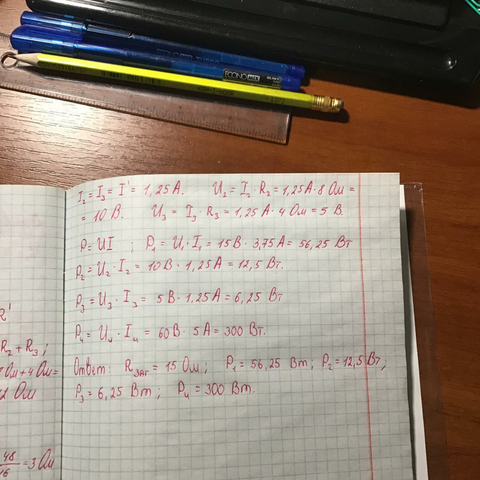 ECONOMIX
I₂ = I₃ = I' = 1,25 А. U₂ = I₂ · R₂ = 1,25 А · 8 Ом =
= 10 В. U₃ = I₃ · R₃ = 1,25 А · 4 Ом = 5 В.
P = UI ; P₁ = U₁ · I₁ = 15 В · 3,75 А = 56,25 Вт
P₂ = U₂ · I₂ = 10 В · 1,25 А = 12,5 Вт.
P₃ = U₃ · I₃ = 5 В · 1,25 А = 6,25 Вт
P₄ = U₄ · I₄ = 60 В · 5 А = 300 Вт.
Ответ: Rзаг = 15 Ом; P₁ = 56,25 Вт; P₂ = 12,5 Вт;
P₃ = 6,25 Вт; P₄ = 300 Вт.
R'
R₂ + R₃ ;
Ом + 4 Ом =
2 Ом
48/16 = 3 Ом